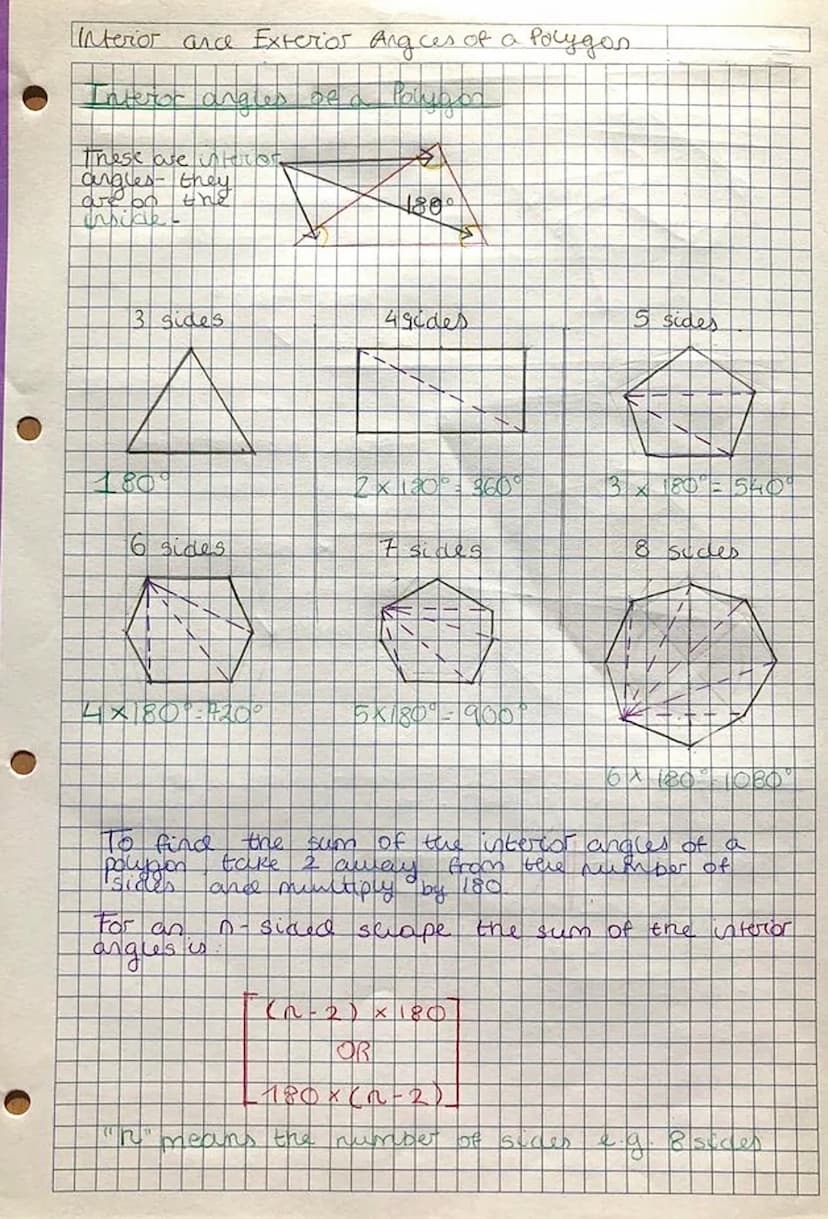 Interior and Exterior Angles of a Polygon
Interior angles of a Polygon
These are interior
angles - they
are on the
inside.
180°
3 sides 4 sides 5 sides
180° 2 x 180° = 360° 3 x 180° = 540°
6 sides 7 sides 8 sides
4 x 180° = 720° 5 x 180° = 900°
6 x 180° = 1080°
To find the sum of the interior angles of a
polygon take 2 away from the number of
sides and multiply by 180.
For an n-sided shape the sum of the interior
angles is:
(n-2) x 180
OR
180 x (n-2)
"n" means the number of sides e.g. 8 sides